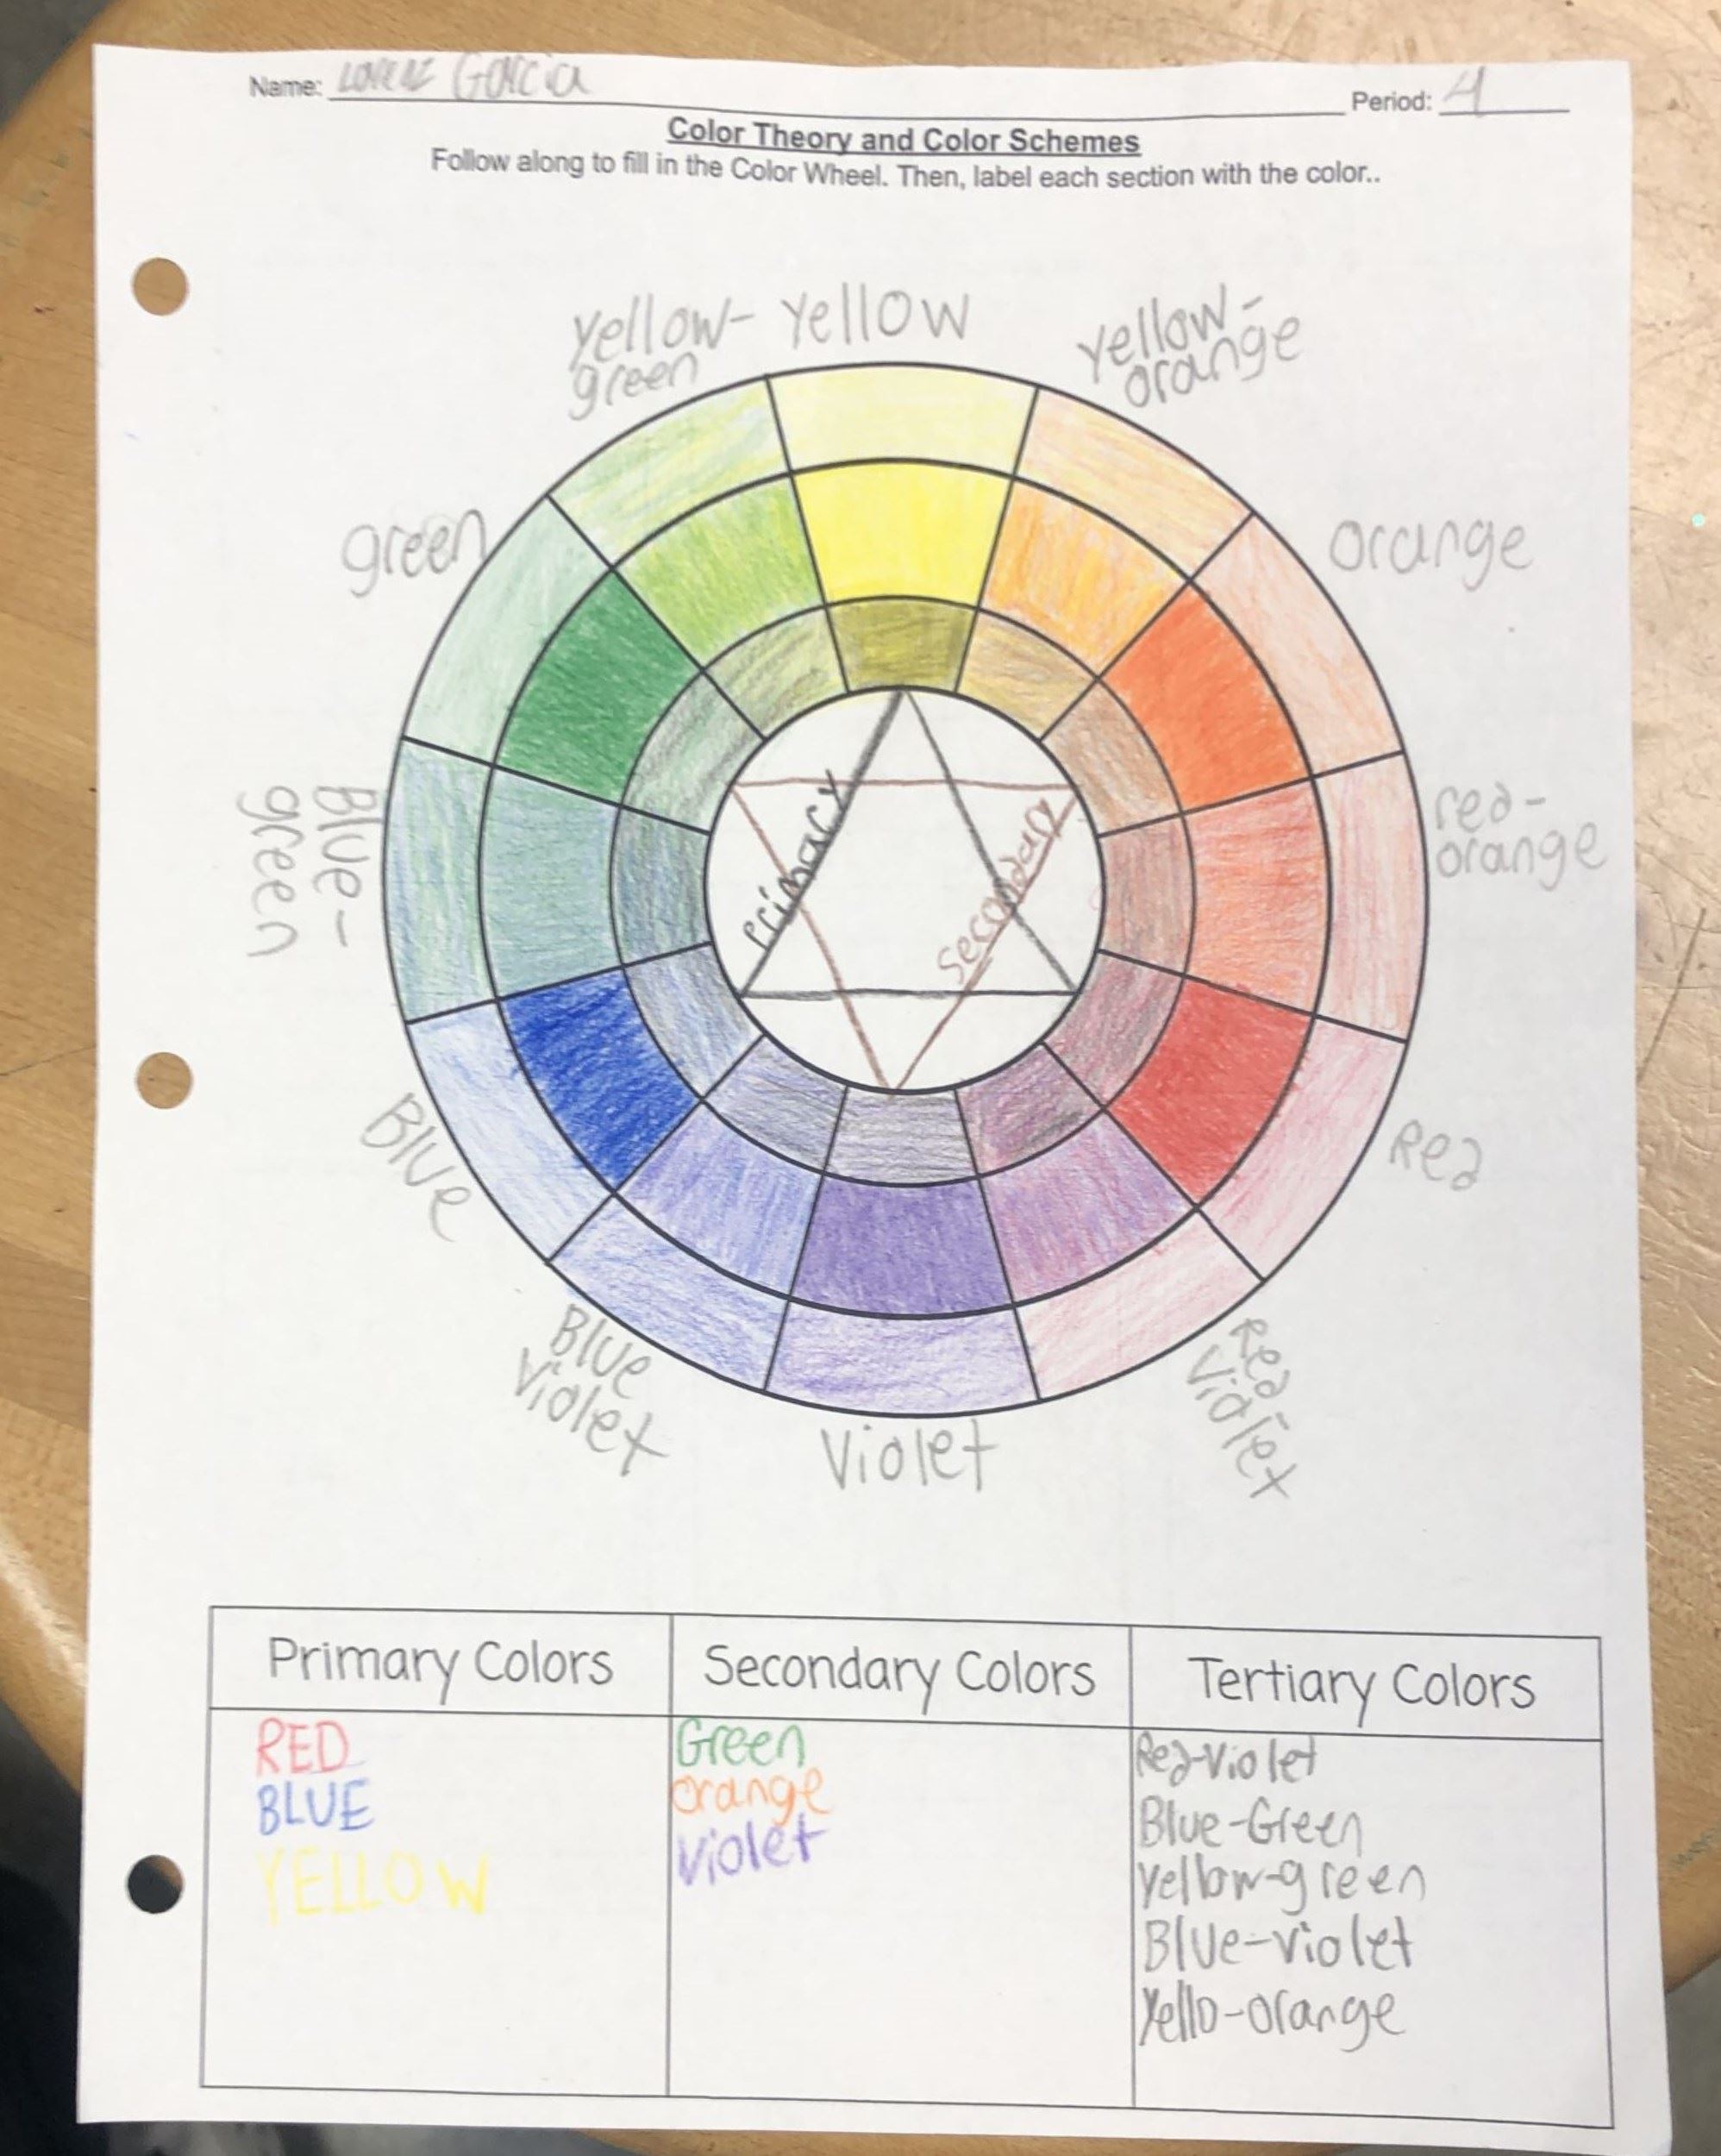 Name: Lorenz Garcia
Period: 4
Color Theory and Color Schemes
Follow along to fill in the Color Wheel. Then, label each section with the color..
yellow-
green
Yellow
yellow-
orange
green
orange
Blue-
green
red-
orange
Primary
Secondary
Blue
Red
Blue
Violet
Violet
Red-
Violet
Primary Colors
Secondary Colors
Tertiary Colors
RED
BLUE
YELLOW
Green
orange
Violet
Red-Violet
Blue-Green
Yellow-green
Blue-violet
Yello-orange